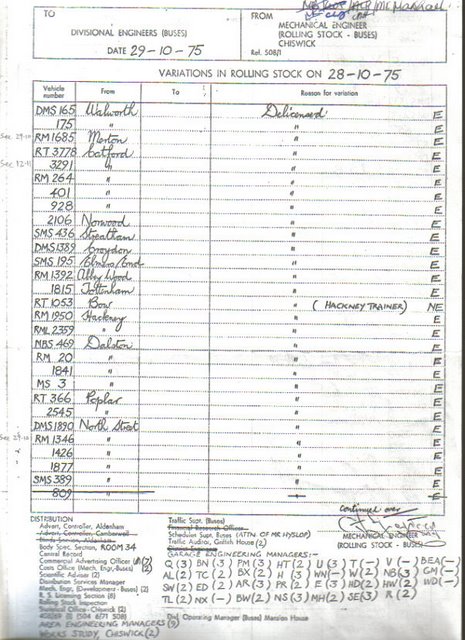 TO
DIVISIONAL ENGINEERS (BUSES)
DATE 29-10-75
FROM
MECHANICAL ENGINEER
(ROLLING STOCK - BUSES)
CHISWICK
Ref. 508/1
VARIATIONS IN ROLLING STOCK ON 28-10-75
Vehicle number From To Reason for variation
DMS 165 Walworth Delicensed E
175 " " E
See 29-10 RM 1685 Merton " E
RT 3778 Catford " E
See 12-11 3291 " " E
RM 264 " " E
401 " " E
928 " " E
2106 Norwood " E
SMS 436 Streatham " E
DMS 1389 Croydon " E
SMS 195 Elmers End " E
RM 1392 Abbey Wood " E
1815 Tottenham " E
RT 1053 Bow " (HACKNEY TRAINER) NE
RM 1950 Hackney " E
RML 2359 " " E
MBS 469 Dalston " E
RM 20 " " E
1841 " " E
MS 3 " " E
RT 366 Poplar " E
2545 " " E
DMS 1890 North Street " E
See 29-10 RM 1346 " " E
1426 " " E
1877 " " E
SMS 389 " " E
809 " " E
continued over
MECHANICAL ENGINEER
(ROLLING STOCK - BUSES)
DISTRIBUTION
Advert. Controller, Aldenham
Advert. Controller, Camberwell
Body Spec. Section, ROOM 34
Central Record
Commercial Advertising Officer (7)
Costs Office (Mech. Engr. Buses) (2)
Scientific Adviser (2)
Distribution Services Manager
Mech. Engr. (Development - Buses) (2)
R. S. Licensing Section (8)
Rolling Stock Inspection
Statistical Office - Chiswick (2)
AREA ENGINEERING MANAGERS
WORKS STUDY, CHISWICK (2)
Traffic Supt. (Buses)
Schedules Supt. (Buses) (ATTN OF MR HYSLOP)
Traffic Auditor, Griffith House (2)
GARAGE ENGINEERING MANAGERS:-
Q (3) BN (3) PM (3) HT (2) U (3) T (-) V (-) BEA (-)
AL (2) TC (2) BX (2) H (3) WN (-) W (-) NB (3) GM (-)
SW (2) ED (2) AR (3) PR (2) E (3) HD (2) HW (2) WD (-)
TL (2) NX (-) BW (2) NS (3) MH (2) SE (3) R (2)
Operating Manager (Buses) Mansion House